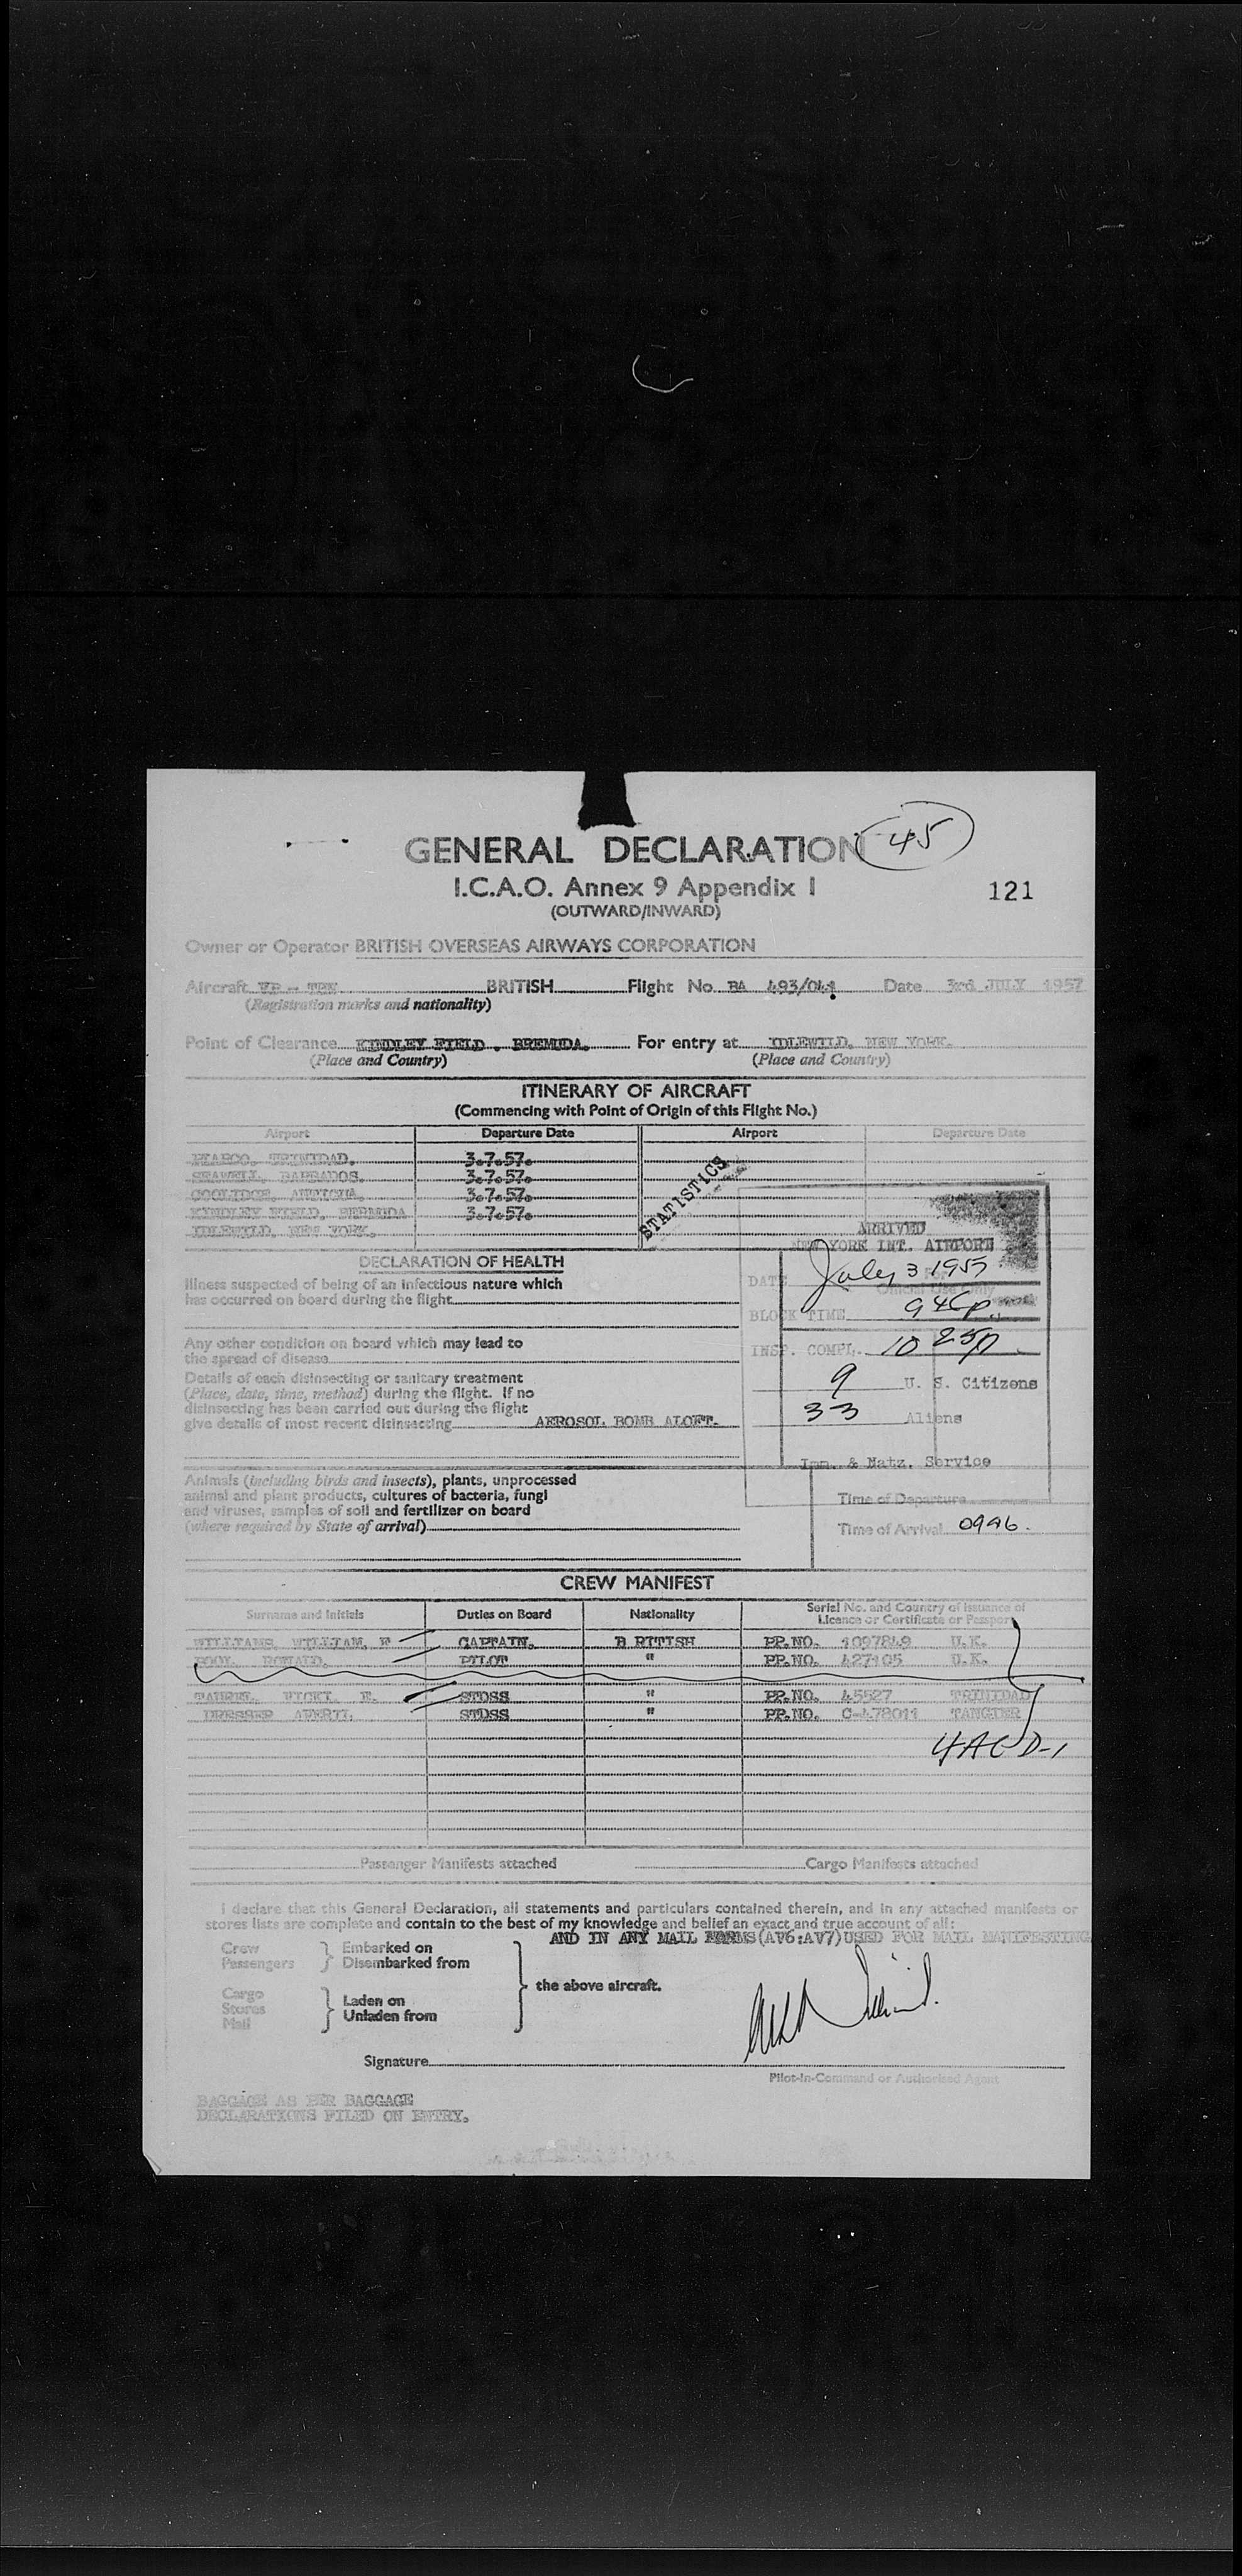 45
GENERAL DECLARATION
I.C.A.O. Annex 9 Appendix I
121
(OUTWARD/INWARD)
Owner or Operator BRITISH OVERSEAS AIRWAYS CORPORATION
Aircraft VP - BRITISH Flight No. BA 493/041 Date 3rd JULY 1957
(Registration marks and nationality)
Point of Clearance KINDLEY FIELD . BREMUDA. For entry at IDLEWILD. NEW YORK.
(Place and Country) (Place and Country)
ITINERARY OF AIRCRAFT
(Commencing with Point of Origin of this Flight No.)
Airport Departure Date Airport Departure Date
PIARCO, TRINIDAD. 3.7.57.
SEAWELL, BARBADOS. 3.7.57.
COOLIDGE, ANTIGUA. 3.7.57.
KINDLEY FIELD, BERMUDA 3.7.57.
IDLEWILD, NEW YORK.
STATISTICS
ARRIVED
NEW YORK INT. AIRPORT
DATE July 3 1957
Official Use Only
BLOCK TIME 946p
INSP. COMPL. 10 25p
9 U. S. Citizens
33 Aliens
Imm. & Natz. Service
DECLARATION OF HEALTH
Illness suspected of being of an infectious nature which
has occurred on board during the flight
Any other condition on board which may lead to
the spread of disease
Details of each disinsecting or sanitary treatment
(Place, date, time, method) during the flight. If no
disinsecting has been carried out during the flight
give details of most recent disinsecting AEROSOL BOMB ALOFT.
Animals (including birds and insects), plants, unprocessed
animal and plant products, cultures of bacteria, fungi
and viruses, samples of soil and fertilizer on board
(where required by State of arrival)
Time of Departure
Time of Arrival
CREW MANIFEST
Surname and Initials Duties on Board Nationality Serial No. and Country of Issuance of
Licence or Certificate or Passport
WILLIAMS, WILLIAM, F CAPTAIN. B RITISH PP.NO. 1097849 U.K.
POOL, RONALD. PILOT " PP.NO. 427105 U.K.
VICKI, E. STDSS " PP.NO. 45527 TRINIDAD
DRESSER STDSS " PP.NO. C-478011 TANGIER
4 D-1
Passenger Manifests attached Cargo Manifests attached
I declare that this General Declaration, all statements and particulars contained therein, and in any attached manifests or
stores lists are complete and contain to the best of my knowledge and belief an exact and true account of all:
AND IN ANY MAIL FORMS(AV6:AV7)USED FOR MAIL MANIFESTING
Crew Embarked on
Passengers Disembarked from
the above aircraft.
Cargo Laden on
Stores Unladen from
Mail
Signature
Pilot-in-Command or Authorised Agent
BAGGAGE AS PER BAGGAGE
DECLARATIONS FILED ON ENTRY.